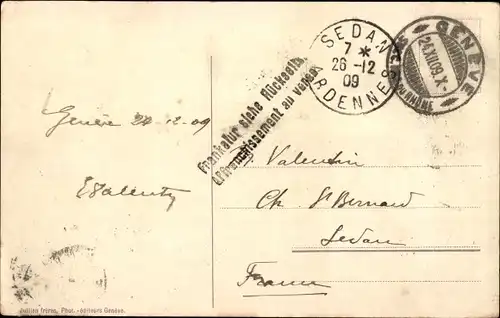 SEDAN
7 *
26 - 12
09
ARDENNES
GENÈVE
24.XII.09.X-
RHÔNE
Frankatur siehe Rückseite
Affranchissement au verso
Genève 24-12-09
Valentin
Ch. St Bernard
Sedan
France
Jullien frères, Phot.-éditeurs Genève.